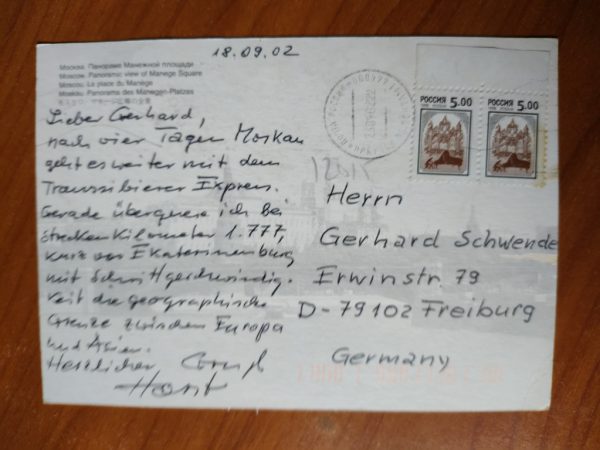 18.09.02
Москва. Панорама Манежной площади
Moscow. Panoramic view of Manege Square
Moscou. La place du Manège
Moskau. Panorama des Manegen-Platzes
Lieber Gerhard,
nach vier Tagen Moskau
geht es weiter mit dem
Transsibierer Express.
Gerade überquere ich bei
Streckenkilometer 1.777,
kurz vor Ekaterinenburg
mit Schrittgeschwindig-
keit die geographische
Grenze zwischen Europa
und Asien.
Herzlichen Gruß
Horst
РОССИЯ 5.00
РОССИЯ 5.00
Herrn
Gerhard Schwende
Erwinstr. 79
D-79102 Freiburg
Germany